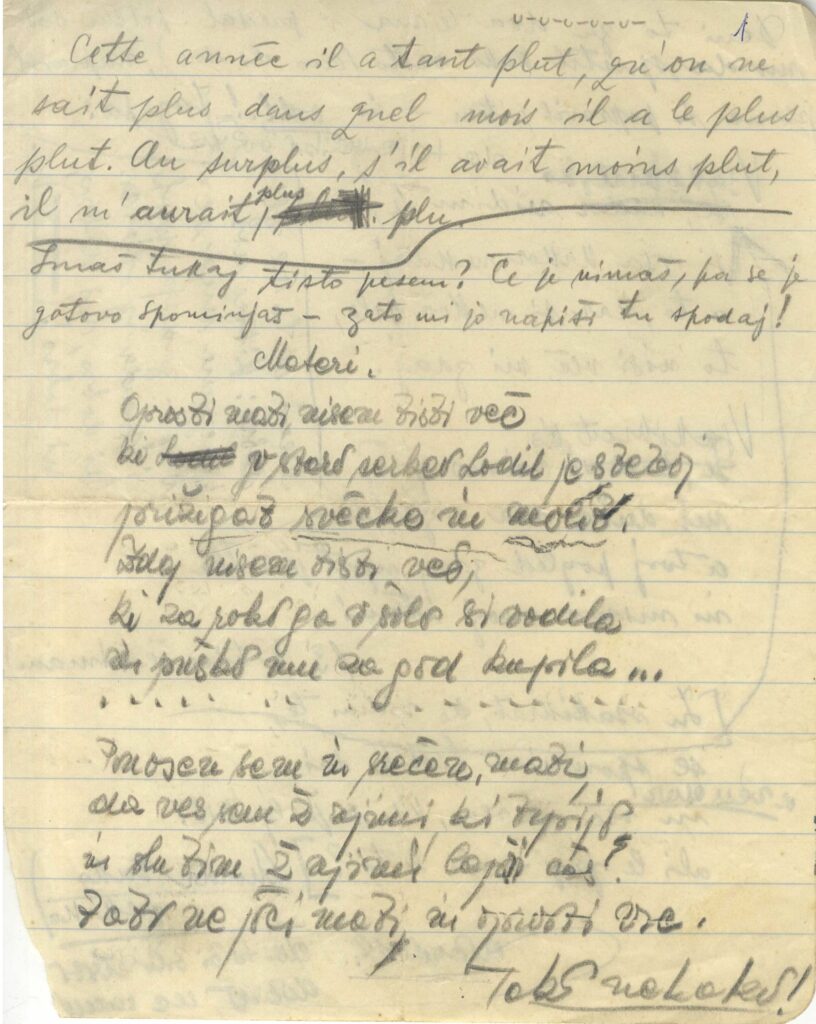 1
Cette année il a tant plut, qu'on ne
sait plus dans quel mois il a le plus
plut. Au surplus, s'il avait moins plut,
il m'aurait plus plu.
Imaš tukaj tisto pesem? Če je nimaš, pa se je
gotovo spominjaš – zato mi jo napiši tu spodaj!
Materi.
Oprosti mati nisem tisti več
ki v staro cerkev hodil je
prižigat svečko in molit.
Zdaj nisem tisti več,
ki za roko ga v šolo si vodila
in puško mu za god kupila ...
Ponosen sem in srečen, mati,
da ves sem z njimi, ki trpijo
in slutim z njimi lepši čas!
Zato ne joči mati, in oprosti vse.
Tako nekako!